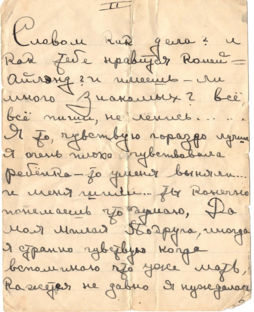 II
Словом как дела? и
как тебе нравится Коней-
Айланд? и имеешь-ли
много знакомых? всё
всё пиши, не ленись.....
Я то, чувствую гораздо лучше
я очень плохо чувствовала
ребёнка-то у меня вынули...
и меня шили... ты конечно
понимаешь что думаю, Да
моя милая подруга, иногда
я странно чувствую когда
вспоминаю что уже мать,
кажется не давно я нуждалась